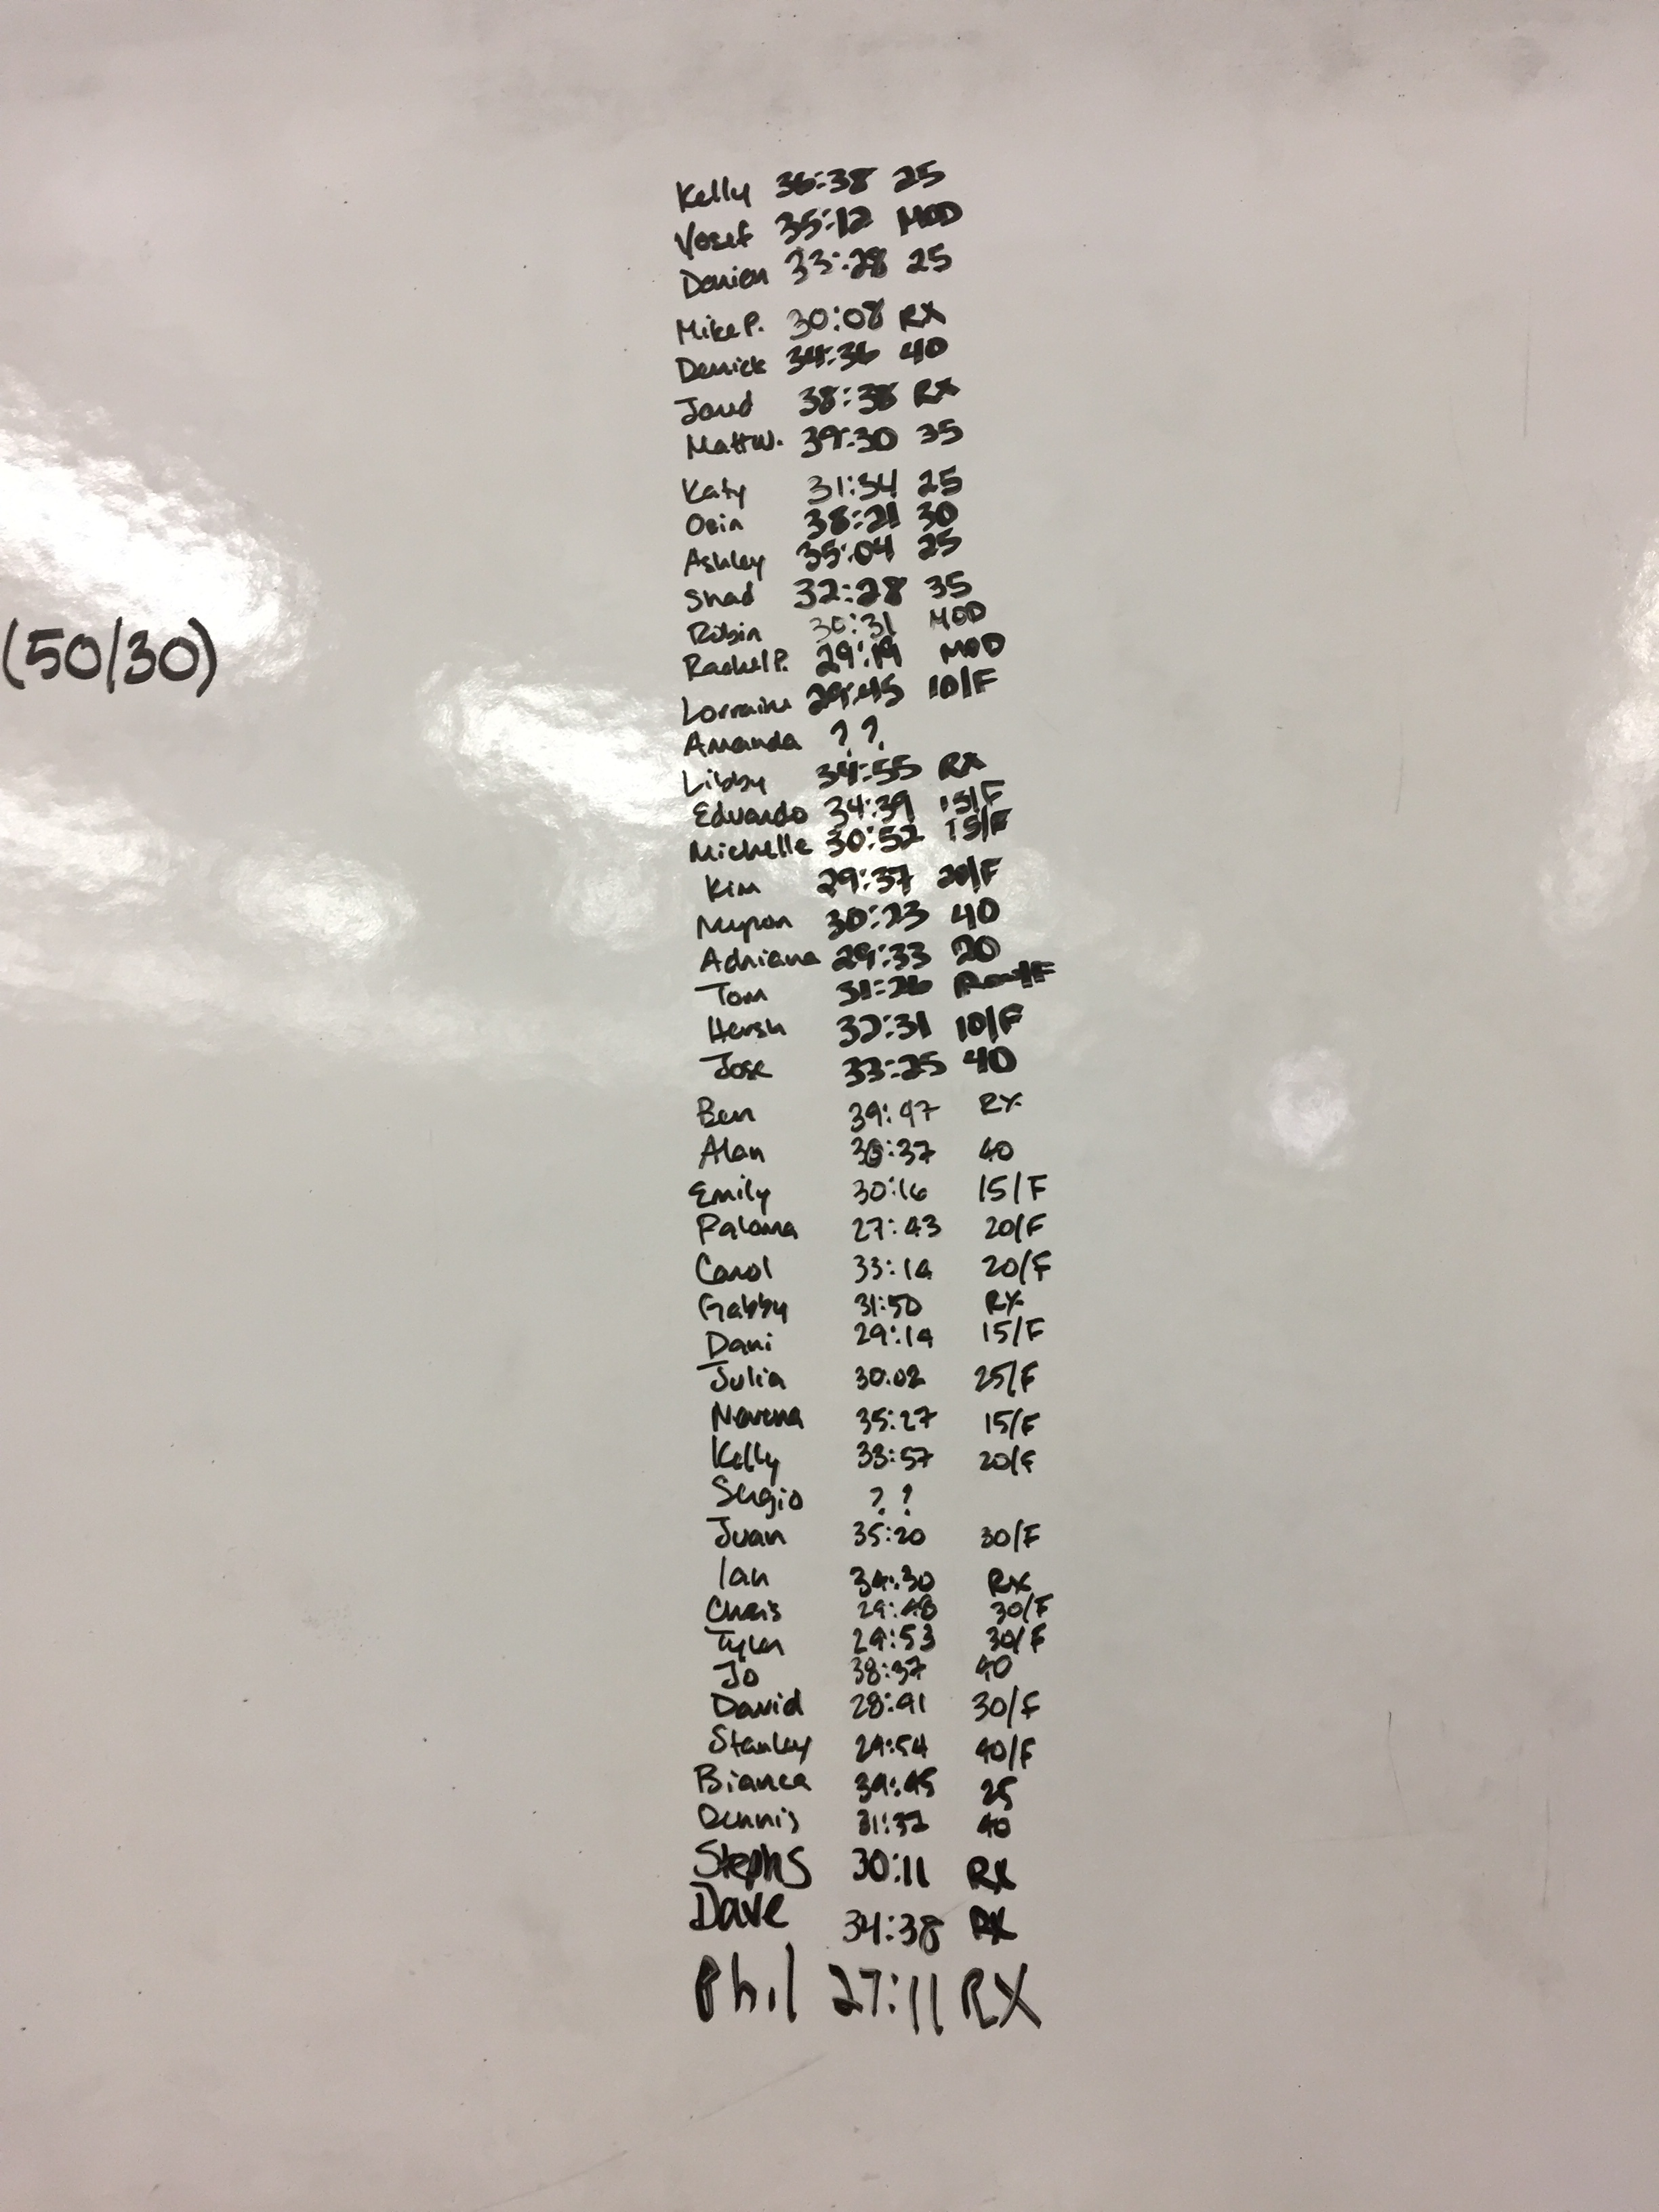 (50/30)
Kelly 36:38 25
Yosef 35:12 MOD
Damien 33:28 25
Mike P. 30:08 RX
Derrick 34:36 40
Jared 38:38 RX
Matt W. 39:30 35
Katy 31:34 25
38:21 30
Ashley 35:04 25
Shad 32:28 35
Robin 30:31 MOD
Rachel P. 29:19 MOD
Lorraine 29:45 10/F
Amanda ??
Libby 34:55 RX
Eduardo 34:39 15/F
Michelle 30:52 15/F
Kim 29:37 20/F
Myron 30:23 40
Adriana 29:33 20
Tom 31:26
Hersh 32:31 10/F
Jose 33:25 40
Ben 39:47 RX
Alan 30:37 40
Emily 30:16 15/F
Paloma 27:43 20/F
Carol 33:14 20/F
Gabby 31:50 RX
Dani 29:14 15/F
Julia 30:02 25/F
Nevena 35:27 15/F
Kelly 33:57 20/F
Sergio ??
Juan 35:20 30/F
Ian 34:30 RX
Chris 29:48 30/F
Tyler 29:53 30/F
Jo 38:37 40
David 28:41 30/F
Stanley 29:54 40/F
Bianca 39:45 25
Dennis 31:32 40
Steph S 30:11 RX
Dave 34:38 RX
Phil 27:11 RX